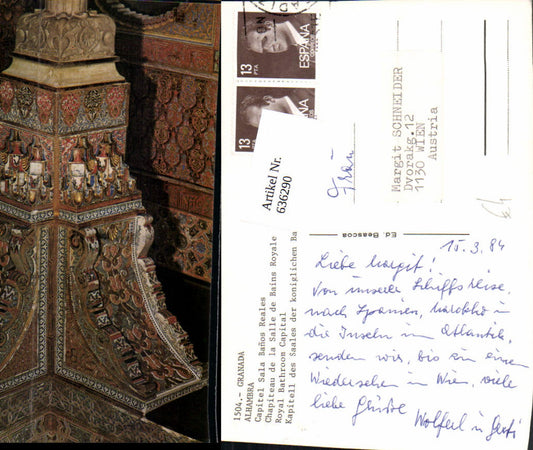 13 PTA
ESPAÑA
13 PTA
ESPAÑA
Artikel Nr.
636290
Frau
Margit SCHNEIDER
Dvorakg.12
1130 WIEN
Austria
Ed. Beascoa
1504.- GRANADA
ALHAMBRA
Capitel Sala Baños Reales
Chapiteau de la Salle de Bains Royale
Royal Bathroom Capital
Kapitell des Saales der koniglichen Ba
15.3.84
Liebe Margit!
Von unserer Schiffsreise,
nach Spanien, Marokko in
die Inseln im Atlantik,
senden wir, bis zu einem
Wiedersehen in Wien, viele
liebe Grüsse
Wolferl u